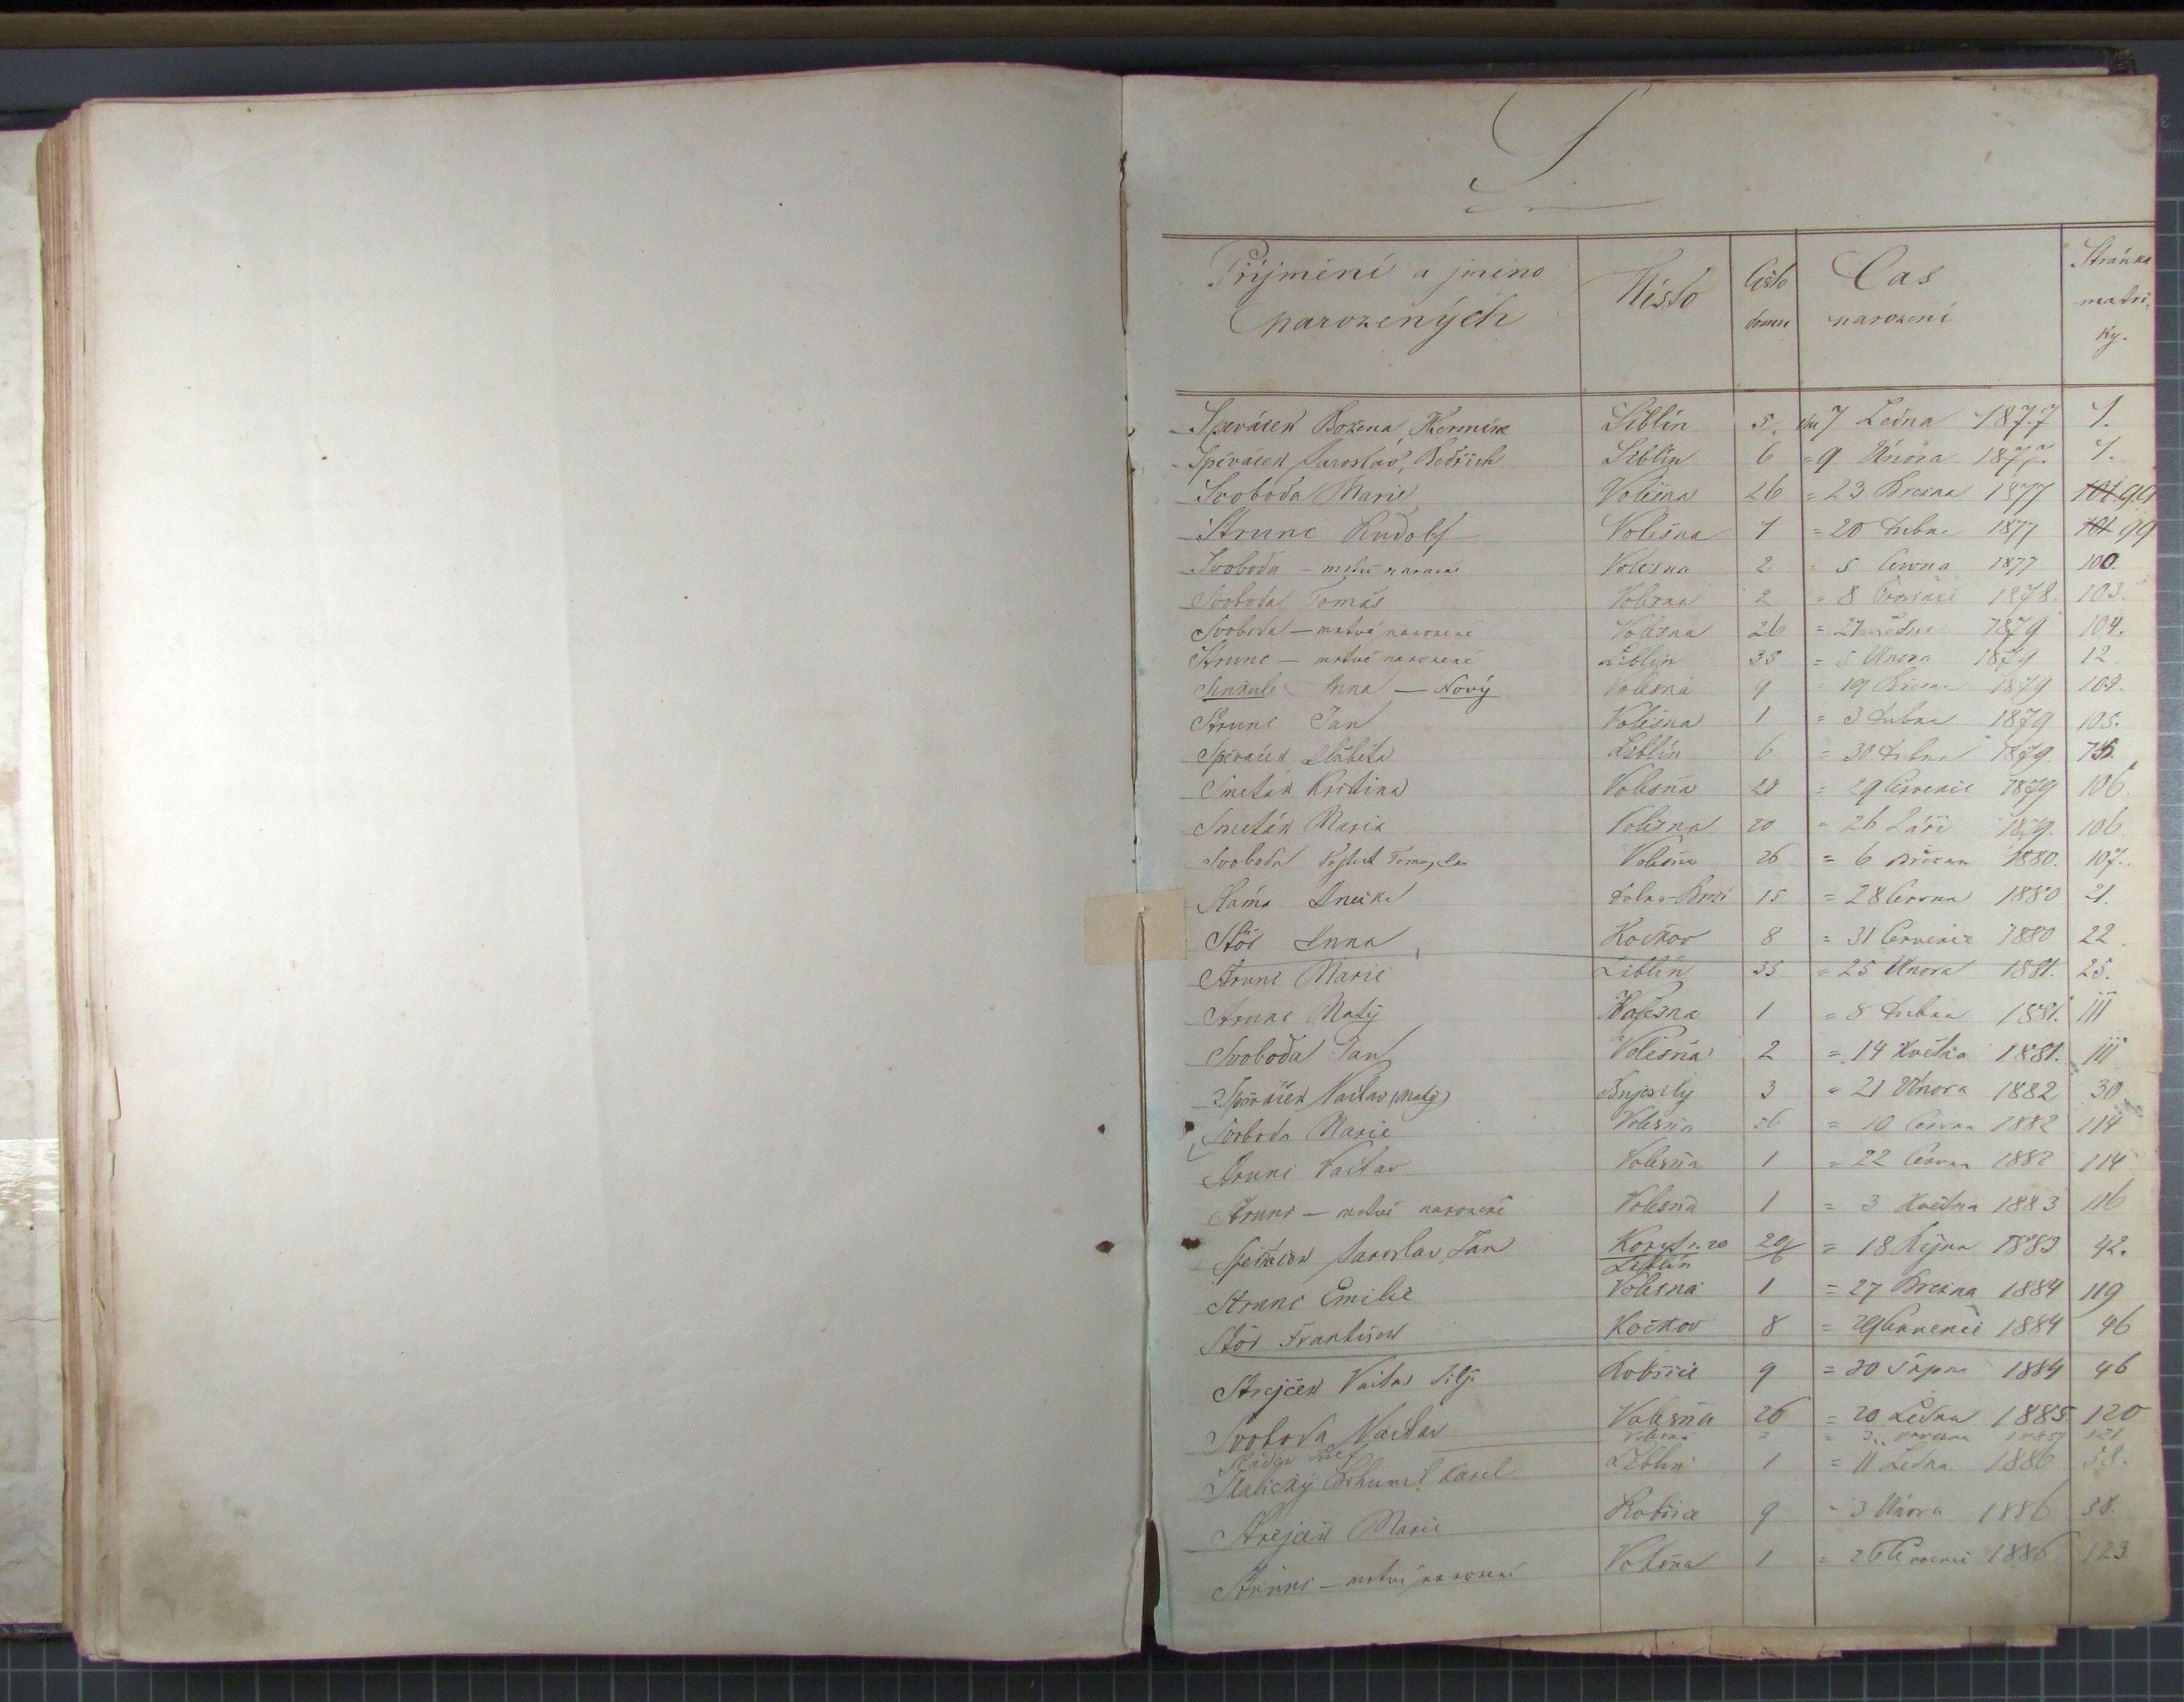 S
Příjmení a jméno narozených Místo Číslo domu Čas narození Stránka matriky.
Spěváček Božena Hermína Liblín 5. dne 7 Ledna 1877 7.
Spěváček Jaroslav, Bedřich Liblín 6 = 9 Února 1877. 7.
Svoboda Marie Volešna 26 = 23 Března 1877 101. 99
Strunc Rudolf Volešna 1 = 20 Dubna 1877 101 99
Svoboda – mrtvě narozené Volešna 2 = 5 Června 1877 100.
Svoboda Tomáš Volešna 2 = 8 1878. 103.
Svoboda – mrtvě narozené Volešna 26 = 27 Ledna 1879 104.
Strunc – mrtvě narozené Liblín 35 = 5 Února 1879 12.
Šinkule Anna – Nový Volešna 9 = 19 Března 1879 104.
Strunc Jan Volešna 1 = 3 Dubna 1879 105.
Spěváček Alžběta Liblín 6 = 30 Dubna 1879.
Smeták Kristina Volešna 28 = 29 Července 1879 106.
Smeták Marie Volešna 20 = 26 Září 1879. 106
Svoboda Volešna 26 = 6 Března 1880. 107.
Sláma Anežka Dolno-Bříz 15 = 28 Června 1880 21.
Stör Anna Kočkov 8 = 31 Července 1880 22.
Strunc Marie Liblín 35 = 25 Února 1881. 25.
Strunc Matěj Volešna 1 = 8 Dubna 1881. 111
Svoboda Jan Volešna 2 = 14 Května 1881. 111
Spěváček Václav (Matěj) Bujesily 3 = 21 Února 1882 30
Svoboda Marie Volešna 26 = 10 Června 1882 114
Strunc Václav Volešna 1 = 22 Června 1882 114
Strunc – mrtvě narozené Volešna 1 = 3 Května 1883 116
Spěváček Jaroslav, Jan Liblín = 18 Října 1883 42.
Strunc Emilie Volešna 1 = 27 Března 1884 119
Stör František Kočkov 8 = 29 Července 1884 46
Strejček Václav Filip Robčice 9 = 20 Srpna 1884 46
Svoboda Václav Volešna 26 = 20 Ledna 1885 120
Volešna 2 = 121
Skalický Bohumil Karel Liblín 1 = 11 Ledna 1886 58.
Strejček Marie Robčice 9 = 3 Února 1886 58.
Strunc – mrtvě narozené Volešna 1 = 26 Července 1886 123